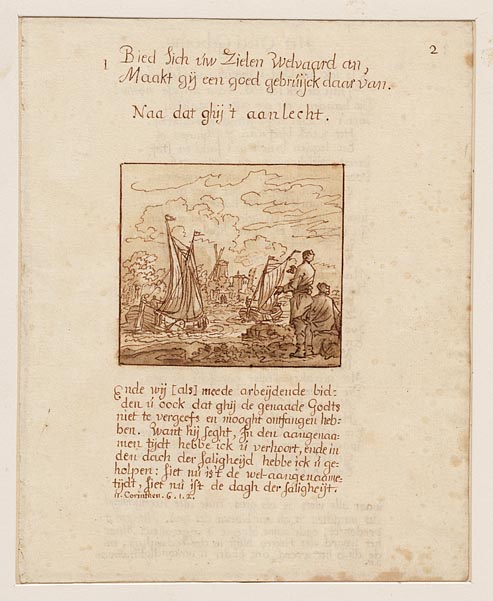 2
1 Bied Sich uw Zielen Welvaard an,
Maakt gij een goed gebruijck daar van.
Naa dat ghij't aanlecht.
Ende wij [als] meede arbeijdende bid-
den u oock dat ghij de genaade Godts
niet te vergeefs en mooght ontfangen heb-
ben. Want hij seght, In den aangenaa-
men tijdt hebbe ick u verhoort, ende in
den dach der saligheijd hebbe ick u ge-
holpen: siet nu is't de wel-aangenaame
tijdt, siet nu ist de dagh der saligheijt.
II. Corinthen. 6. 1. 2.